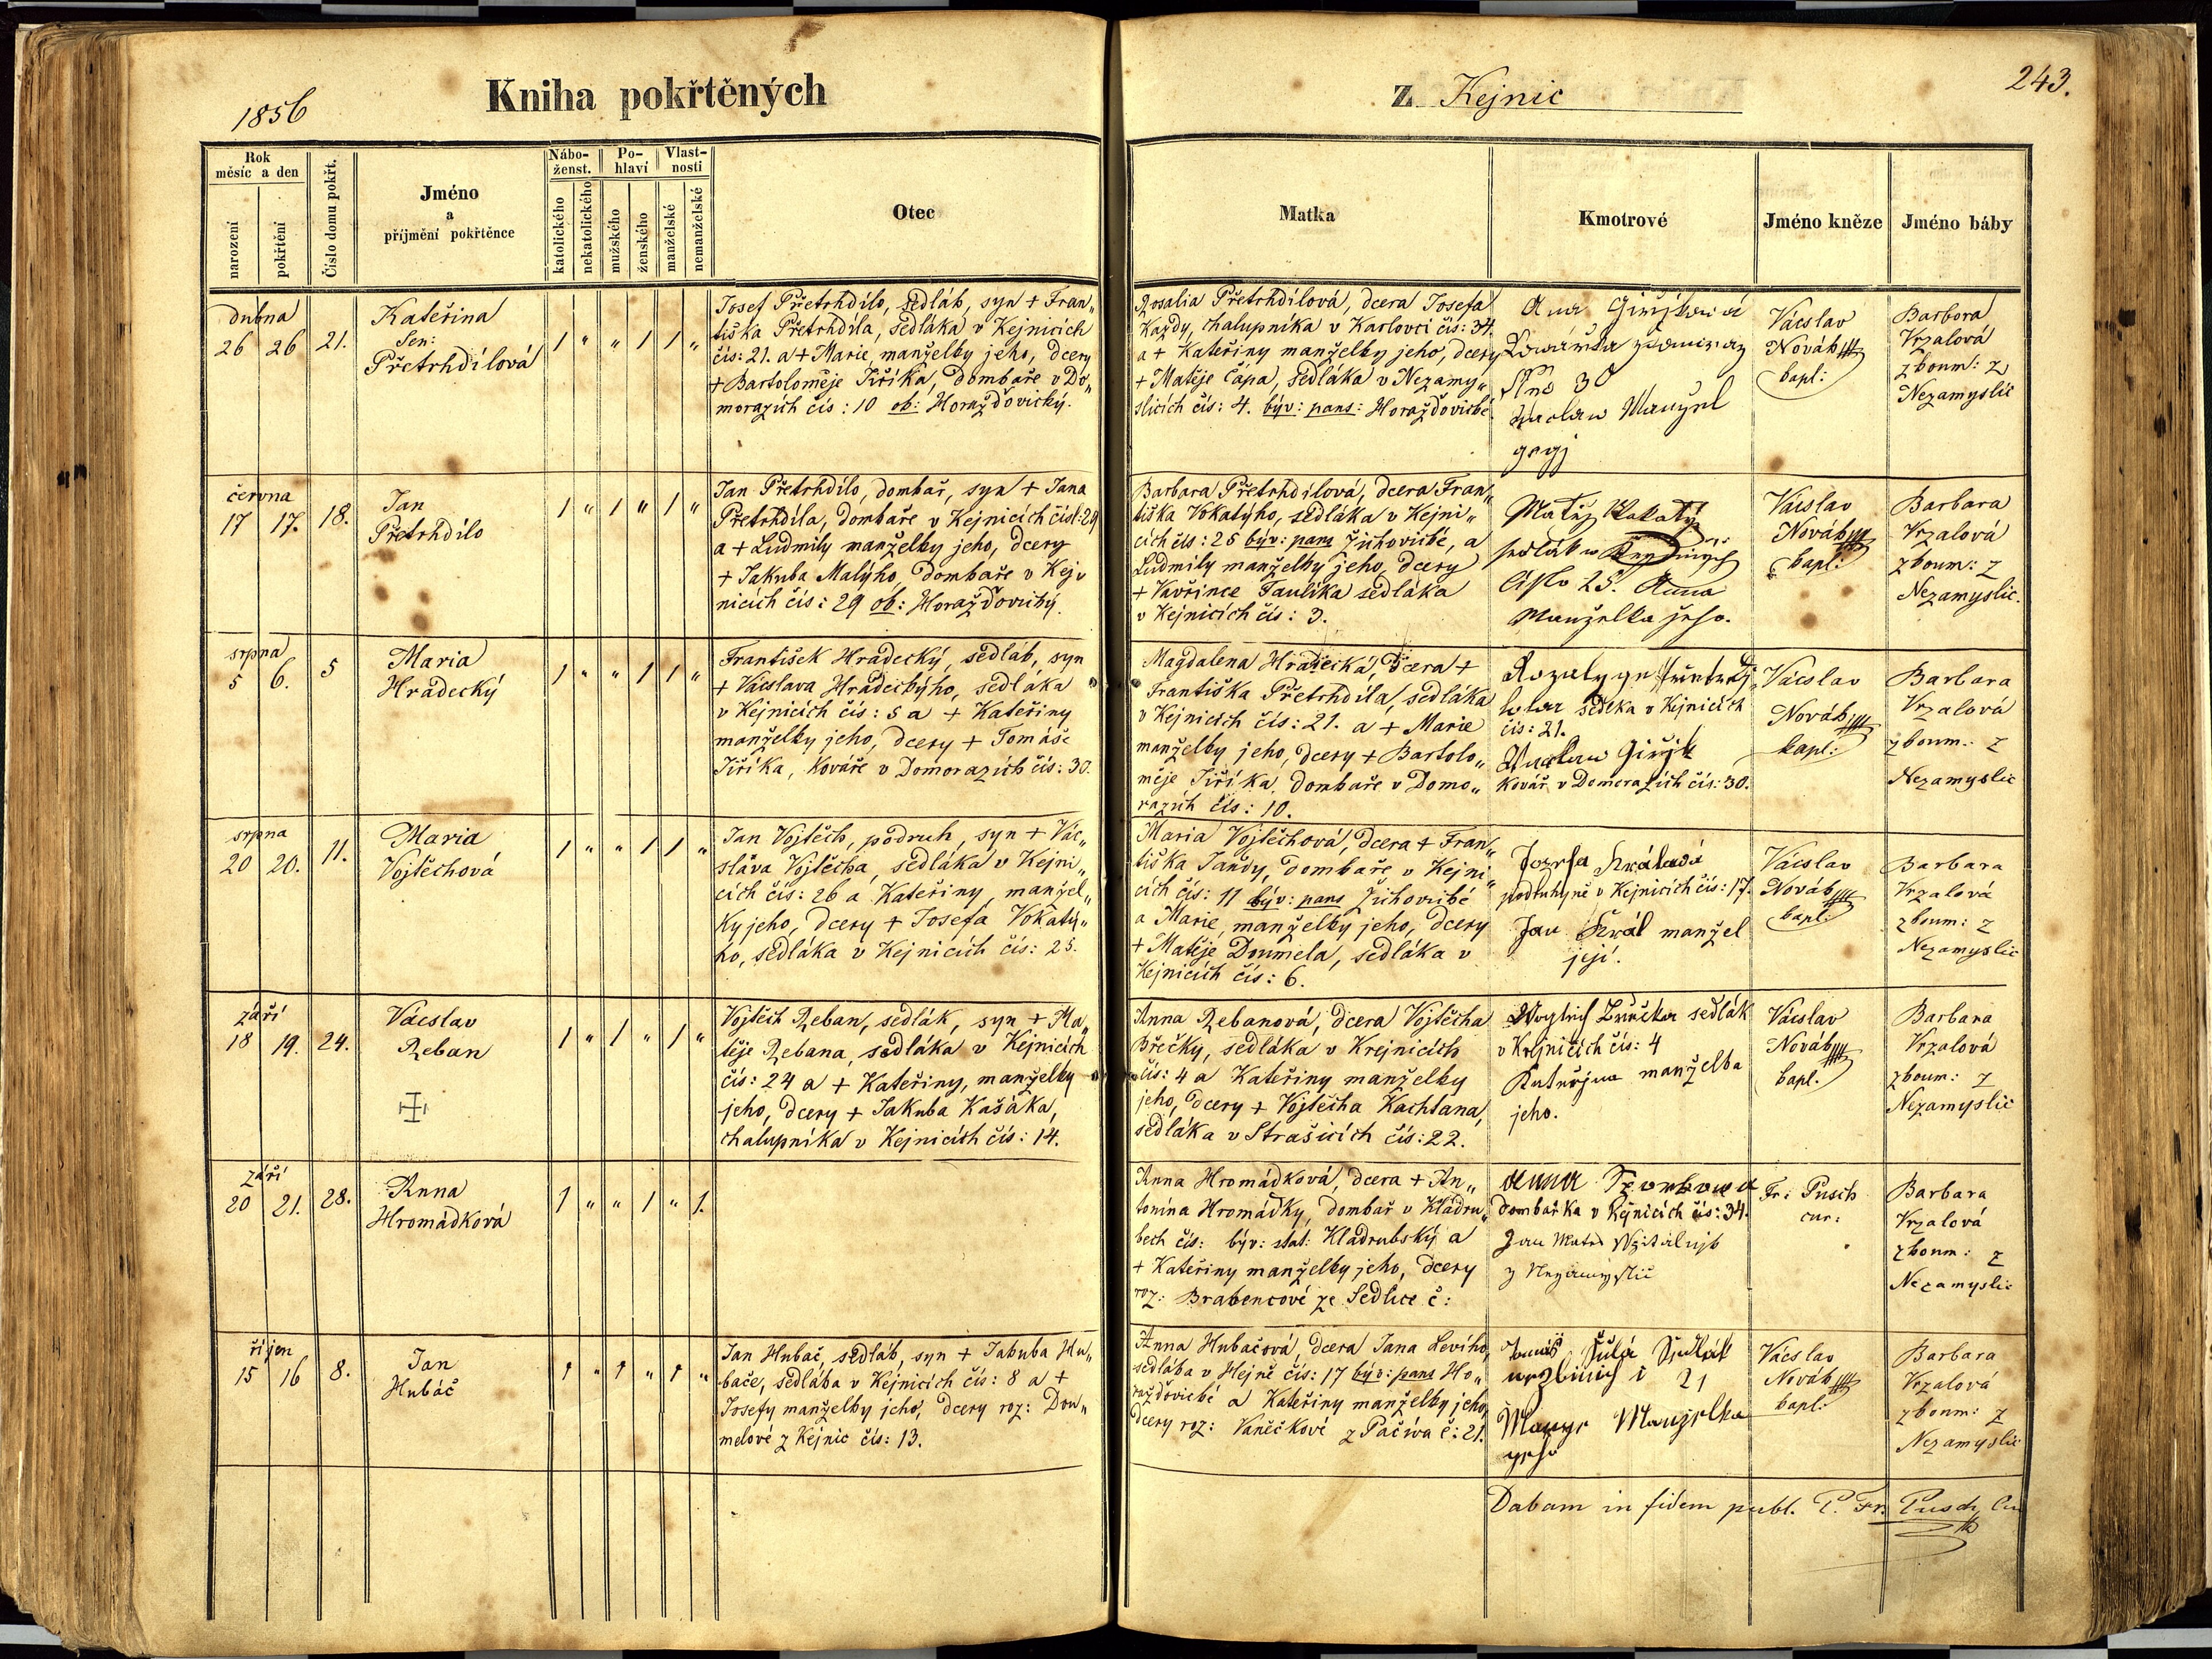 1856
Kniha pokřtěných
Z Kejnic
243.
Rok
měsíc a den
narození
pokřtění
Číslo domu pokřt.
Jméno
a
příjmění pokřtěnce
Nábo-
ženst.
katolického
nekatolického
Po-
hlaví
mužského
ženského
Vlast-
nosti
manželské
nemanželské
Otec
Matka
Kmotrové
Jméno kněze
Jméno báby
dubna
26 26 21.
Kateřina
Sen:
Přetrhdílová
1 " " 1 1 "
Josef Přetrhdílo, sedlák, syn + Fran„
tiška Přetrhdíla, sedláka v Kejnicích
čís: 21. a + Marie, manželky jeho, dcery
+ Bartoloměje Jiříka, domkaře v Do„
morazích čís: 10 ob: Horažďovický.
Rosalia Přetrhdílová, dcera Josefa
Kazdy, chalupníka v Karlovci čís: 34.
a + Kateřiny manželky jeho, dcery
+ Matěje Čápa, sedláka v Nezamy„
slicích čís: 4. býv: pans: Horažďovické
Ana
30
Waclaw Manžel
gegj
Vácslav
Novák
kapl:
Barbora
Vrzalová
zkoum: z
Nezamyslic
června
17 17. 18.
Jan
Přetrhdílo
1 " 1 " 1 "
Jan Přetrhdílo, domkař, syn + Jana
Přetrhdíla, domkaře v Kejnicích čísl: 29
a + Ludmily manželky jeho, dcery
+ Jakuba Malýho, domkaře v Kej„
nicích čís: 29 ob: Horažďovický.
Barbara Přetrhdílová, dcera Fran„
tiška Vokatýho, sedláka v Kejni„
cích čís: 25 býv: pans Žichovické, a
Ludmily manželky jeho, dcery
+ Vavřince Faulíka sedláka
v Kejnicích čís: 3.
Matěg Wokatý
sedlák w
Čjslo 25. Anna
Manželka jeho.
Vácslav
Novák
kapl:
Barbara
Vrzalová
zkoum: z
Nezamyslic.
srpna
5 6. 5
Maria
Hradecký
1 " " 1 1 "
František Hradecký, sedlák, syn
+ Vácslava Hradeckýho, sedláka
v Kejnicích čís: 5 a + Kateřiny
manželky jeho, dcery + Tomáše
Jiříka, Kováře v Domorazích čís: 30.
Magdalena Hradecká, dcera +
Františka Přetrhdíla, sedláka
v Kejnicích čís: 21. a + Marie
manželky jeho, dcery + Bartolo„
měje Jiříka, domkaře v Domo„
razích čís: 10.
sedlka v Kejnicích
čís: 21.
Waclaw Giřjk
Kovář v Domorazích čís: 30.
Vácslav
Novák
kapl:
Barbara
Vrzalová
zkoum: z
Nezamyslic
srpna
20 20. 11.
Maria
Vojtěchová
1 " " 1 1 "
Jan Vojtěch, podruh, syn + Vác„
slava Vojtěcha, sedláka v Kejni„
cích čís: 26 a Kateřiny, manžel„
ky jeho, dcery + Josefa Vokatý„
ho, sedláka v Kejnicích čís: 25.
Maria Vojtěchová, dcera + Fran„
tiška Jandy, domkaře v Kejni„
cích čís: 11 býv: pans Žichovické
a Marie, manželky jeho, dcery
+ Matěje Doumela, sedláka v
Kejnicích čís: 6.
Jozefa Králová
podruhyně v Kejnicích čís: 17.
Jan Král manžel
její.
Vácslav
Novák
kapl:
Barbara
Vrzalová
zkoum: z
Nezamyslic
září
18 19. 24.
Vácslav
Řeban
1 " 1 " 1 "
Vojtěch Řeban, sedlák, syn + Ma„
těje Řebana, sedláka v Kejnicích
čís: 24 a + Kateřiny, manželky
jeho, dcery + Jakuba Kašáka,
chalupníka v Kejnicích čís: 14.
Anna Řebanová, dcera Vojtěcha
Břečky, sedláka v Krejnicích
čís: 4 a Kateřiny manželky
jeho, dcery + Vojtěcha Kachtana,
sedláka v Strašicích čís: 22.
Břečka sedlák
v Krejnicích čís: 4
Kateřjna manželka
jeho.
Vácslav
Novák
kapl.
Barbara
Vrzalová
zkoum: z
Nezamyslic
září
20 21. 28.
Anna
Hromádková
1 " " 1 " 1.
Anna Hromádková, dcera + An„
tonína Hromádky, domkař v Kladru„
bech čís: býv: stat: Kladrubský a
+ Kateřiny manželky jeho, dcery
roz: Brabencové ze Sedlice č:
Anna
domkařka v Kejnicích čís: 34.
Jan
z Nezamyslic
Fr: Pusch
cur:
Barbara
Vrzalová
zkoum: z
Nezamyslic
říjen
15 16 8.
Jan
Hubáč
1 " 1 " 1 "
Jan Hubač, sedlák, syn + Jakuba Hu„
bače, sedláka v Kejnicích čís: 8 a +
Josefy manželky jeho, dcery roz: Dou„
melové z Kejnic čís: 13.
Anna Hubačová, dcera Jana Levího,
sedláka v Hejně čís: 17 býv: pans Ho„
ražďovické a Kateřiny manželky jeho,
dcery roz: Vaněčkové z Pačiva č: 21.
Šula Sedlák
21
Manželka
geho
Vácslav
Novák
kapl:
Barbara
Vrzalová
zkoum: z
Nezamyslic
Dabam in fidem publ. P. Fr. Pusch, Cur